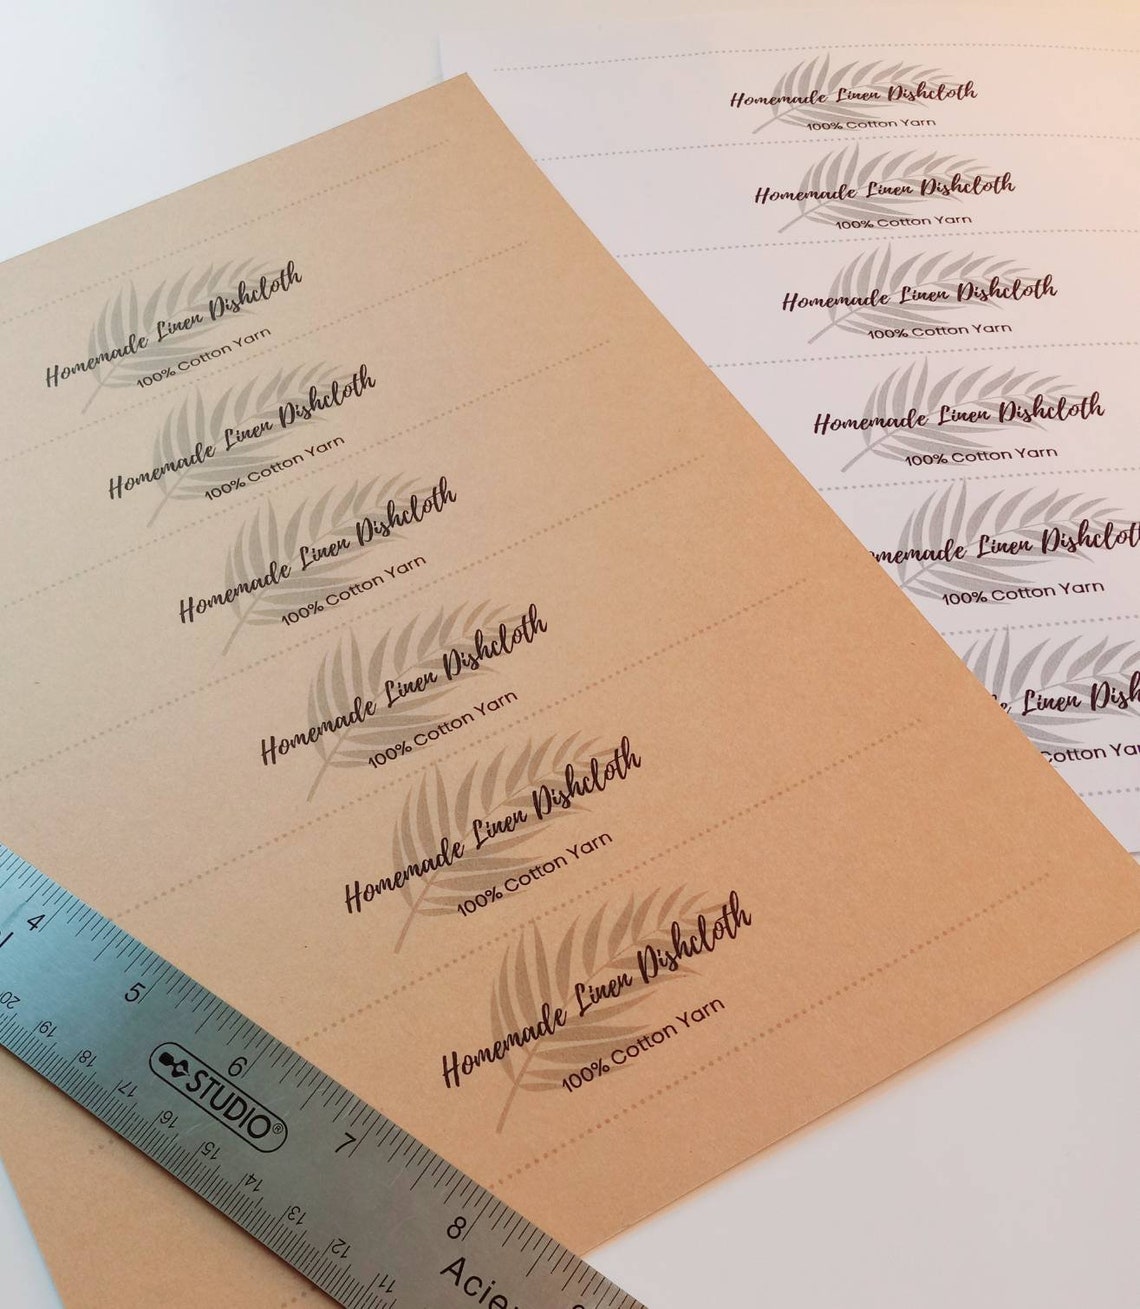 Homemade Linen Dishcloth
100% Cotton Yarn
Homemade Linen Dishcloth
100% Cotton Yarn
Homemade Linen Dishcloth
100% Cotton Yarn
Homemade Linen Dishcloth
100% Cotton Yarn
Homemade Linen Dishcloth
100% Cotton Yarn
Homemade Linen Dishcloth
100% Cotton Yarn
Homemade Linen Dishcloth
100% Cotton Yarn
Homemade Linen Dishcloth
100% Cotton Yarn
Homemade Linen Dishcloth
100% Cotton Yarn
Homemade Linen Dishcloth
100% Cotton Yarn
memade Linen Dishclot
100% Cotton Yarn
Linen Dish
Cotton Ya
4 5 6 7 8
STUDIO®
20 19 18 17 16 15 14 13 12 11
Acie